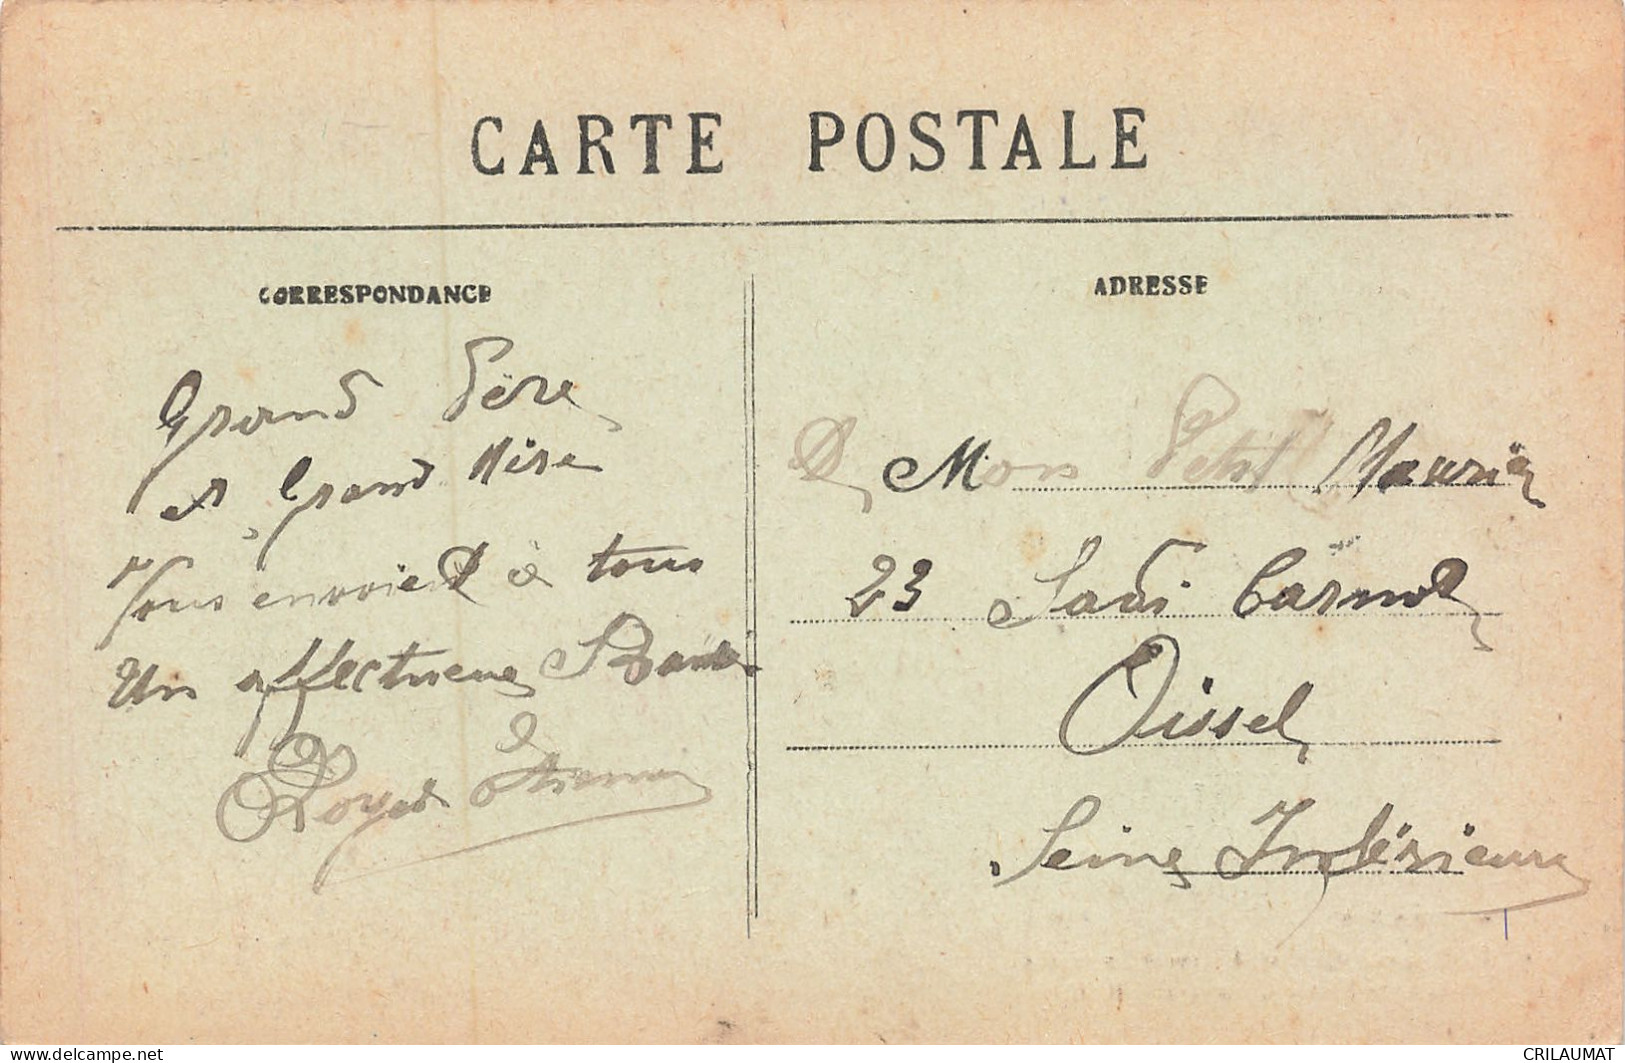 CARTE POSTALE
CORRESPONDANCE
Grand Père
et Grand Mère
Vous envoient à tous
Un affectueux Baiser
Royer Etienne
ADRESSE
A Mon Petit Maurice
23 Sadi Carnot
Oissel
Seine Inférieure
delcampe.net
CRILAUMAT